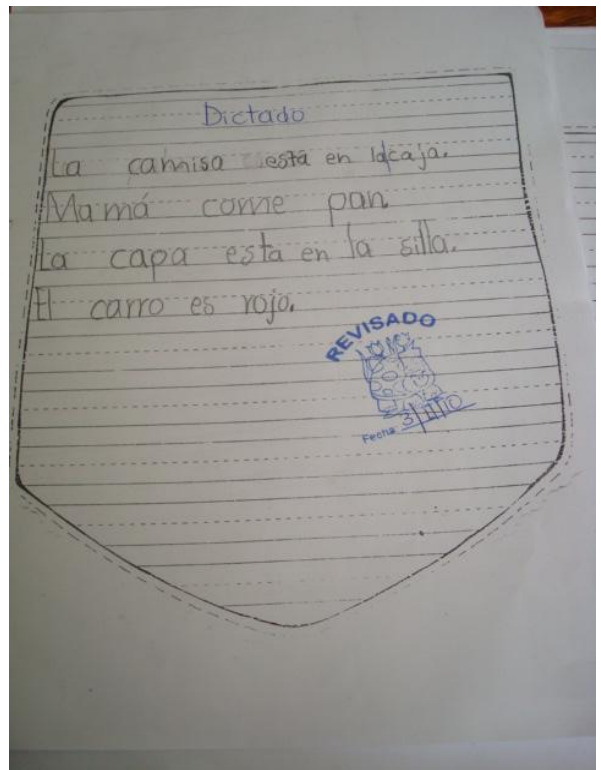 Dictado
La camisa está en la caja.
Mamá come pan.
La capa esta en la silla.
El carro es rojo.
REVISADO
Fecha 3/11/10